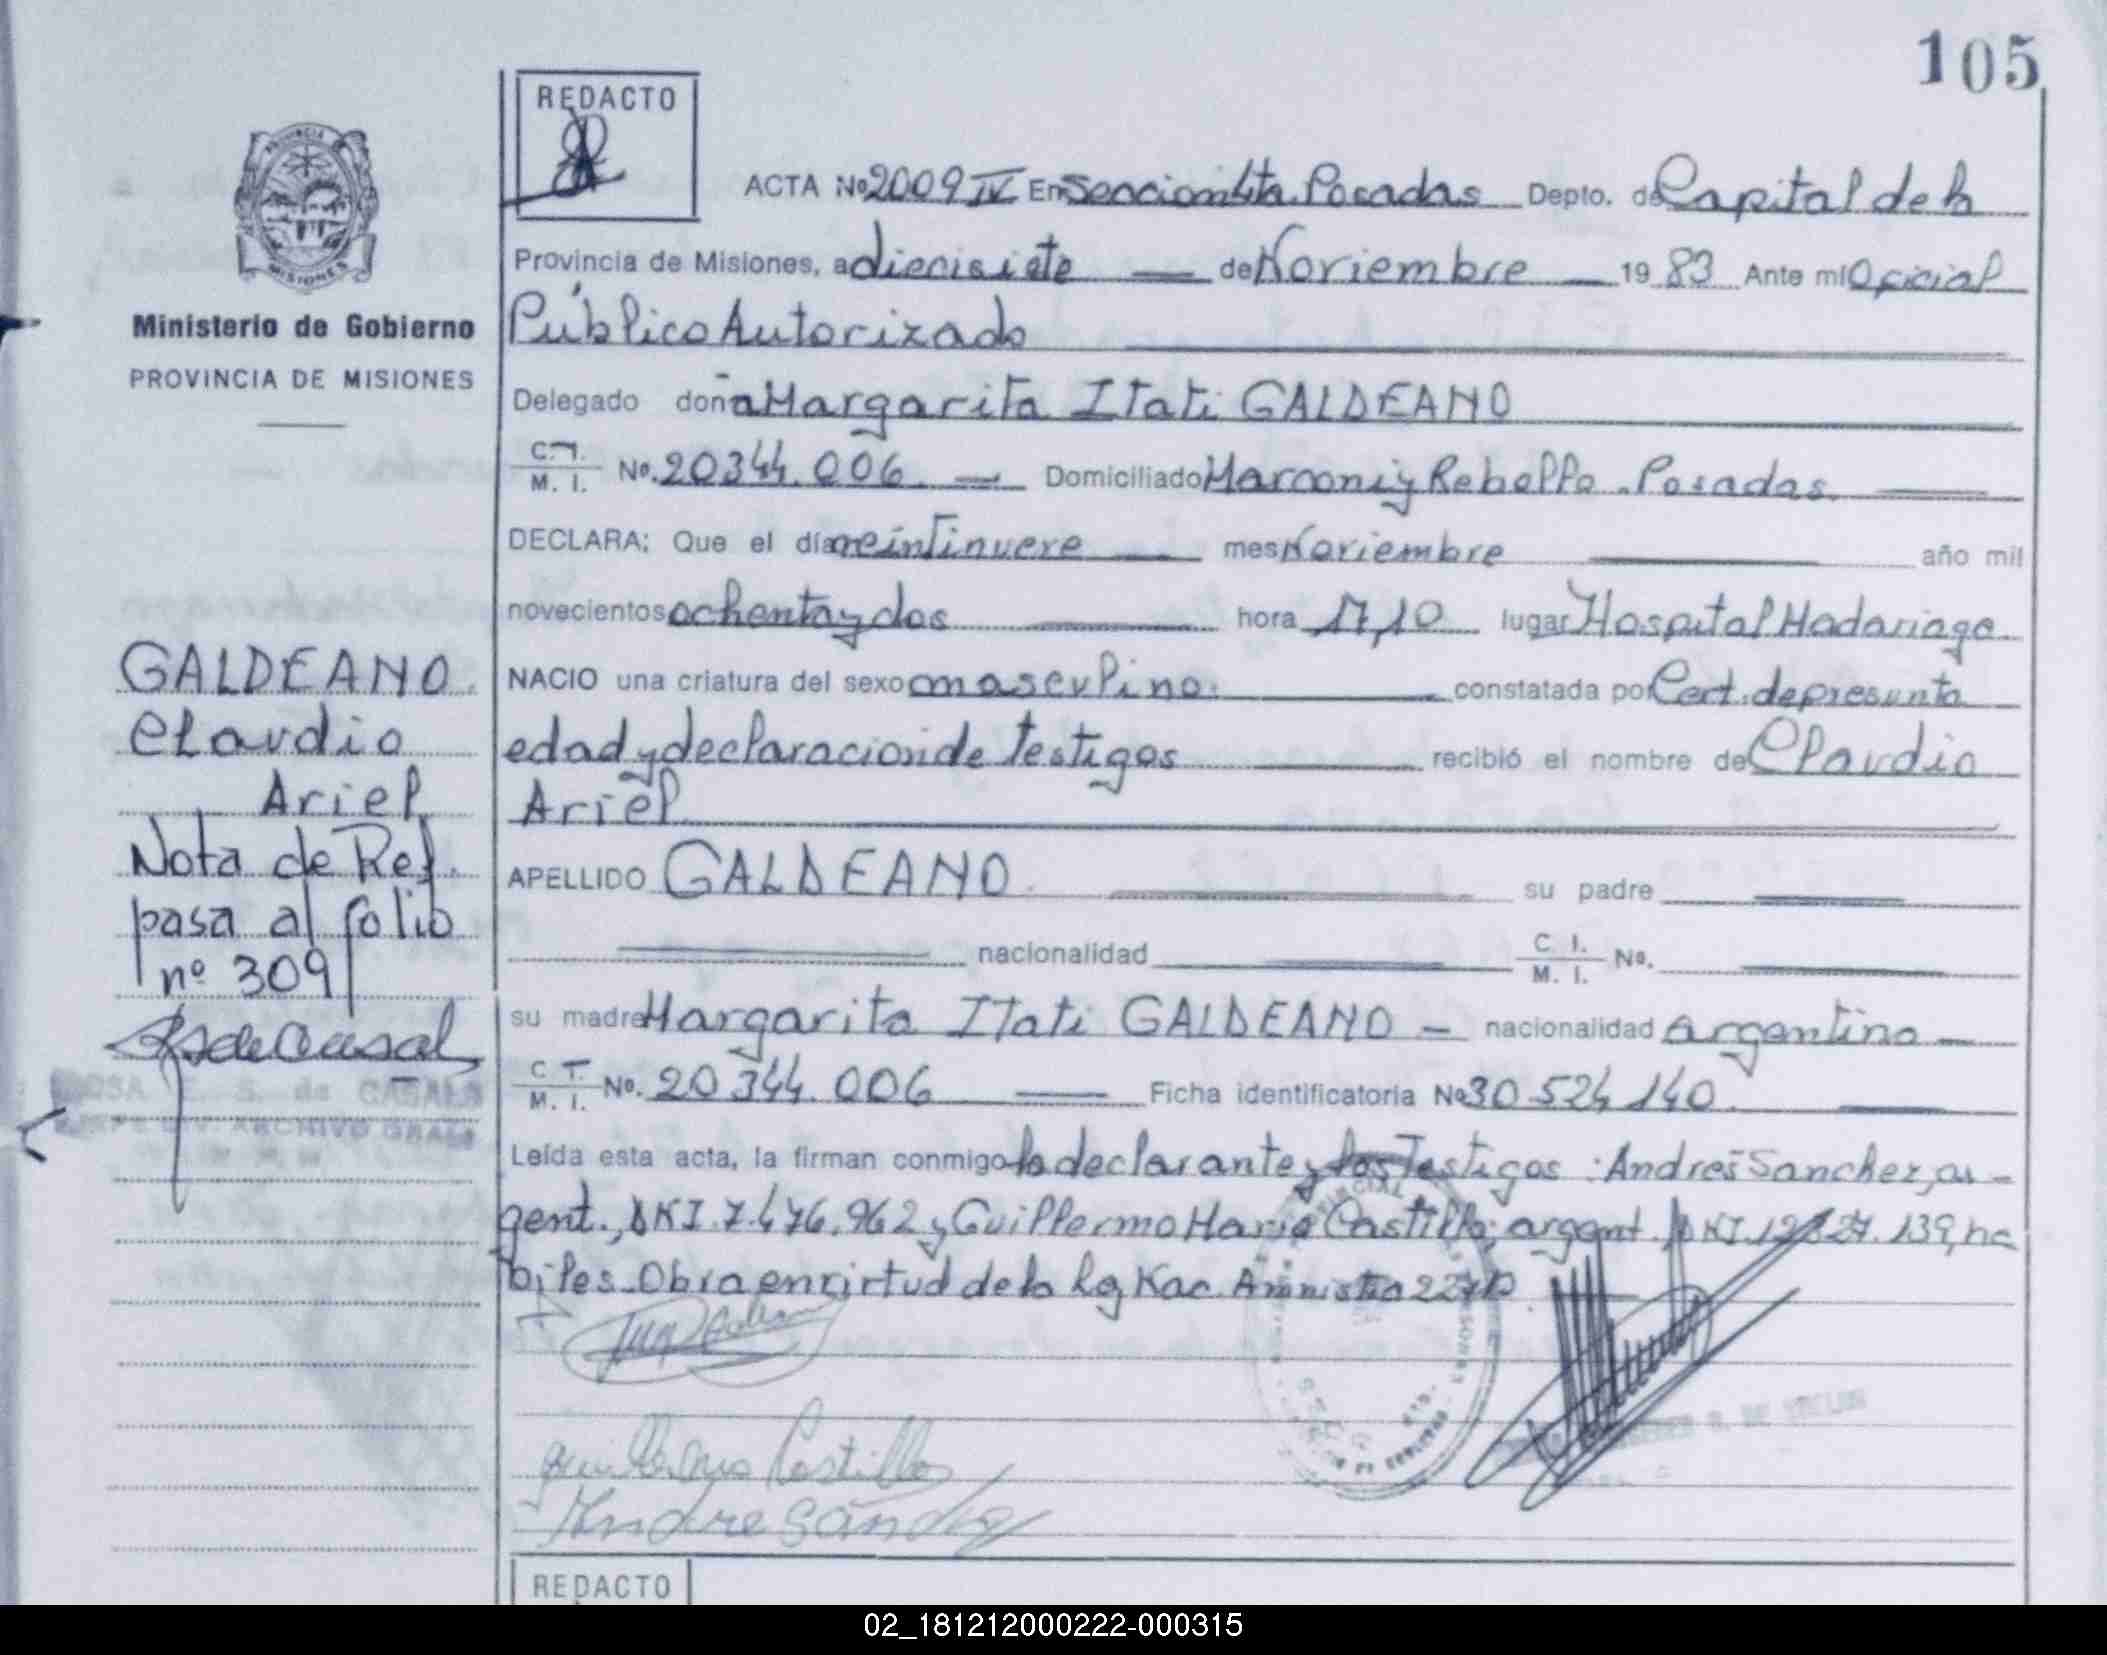 105
REDACTO
PROVINCIA
MISIONES
Ministerio de Gobierno
PROVINCIA DE MISIONES
ACTA Nº 2009 IV En Seccion 4ta. Posadas Depto. de Capital de la
Provincia de Misiones, a diecisiete — de Noviembre — 19 83 Ante mí Oficial
Público Autorizado
Delegado doña Margarita Itati GALDEANO
C. I. M. I. Nº. 20344.006 — Domiciliado Marconi y Rebollo - Posadas.
DECLARA: Que el día veintinueve — mes Noviembre — año mil
novecientos ochenta y dos — hora 17,10 lugar Hospital Madariaga
NACIO una criatura del sexo masculino. — constatada por Cert. de presunta
edad y declaracion de testigos — recibió el nombre de Claudio
Ariel
APELLIDO GALDEANO. — su padre —
— nacionalidad — C. I. M. I. Nº. —
su madre Margarita Itati GALDEANO — nacionalidad argentina —
C. I. M. I. Nº. 20344.006 — Ficha identificatoria Nº 30524140. —
Leída esta acta, la firman conmigo la declarante y los Testigos: Andrés Sanchez, ar-
gent., DNI.7.476.962 y Guillermo Mario Castillo, argent. DNI. 139, ha
biles. Obra en virtud de la Ley Nac. Amnistia
GALDEANO.
Claudio
Ariel
Nota de Ref.
pasa al folio
nº 309
E. S. de
ARCHIVO GRAL
Guillermo Castillo
Andre Sanchez
REDACTO
02_181212000222-000315